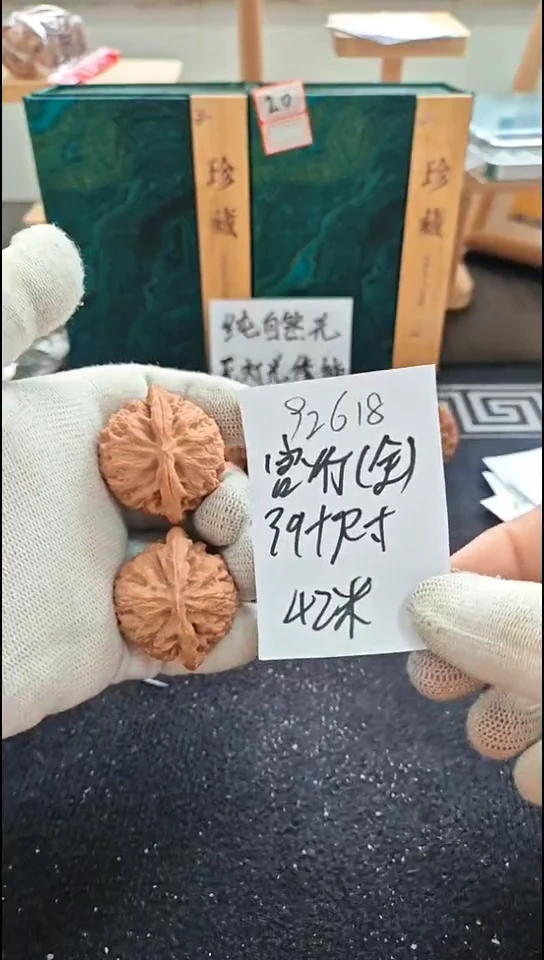 20
珍藏
珍藏
纯自然光
无打光修帧
92618
密竹(金)
39+尺寸
42米